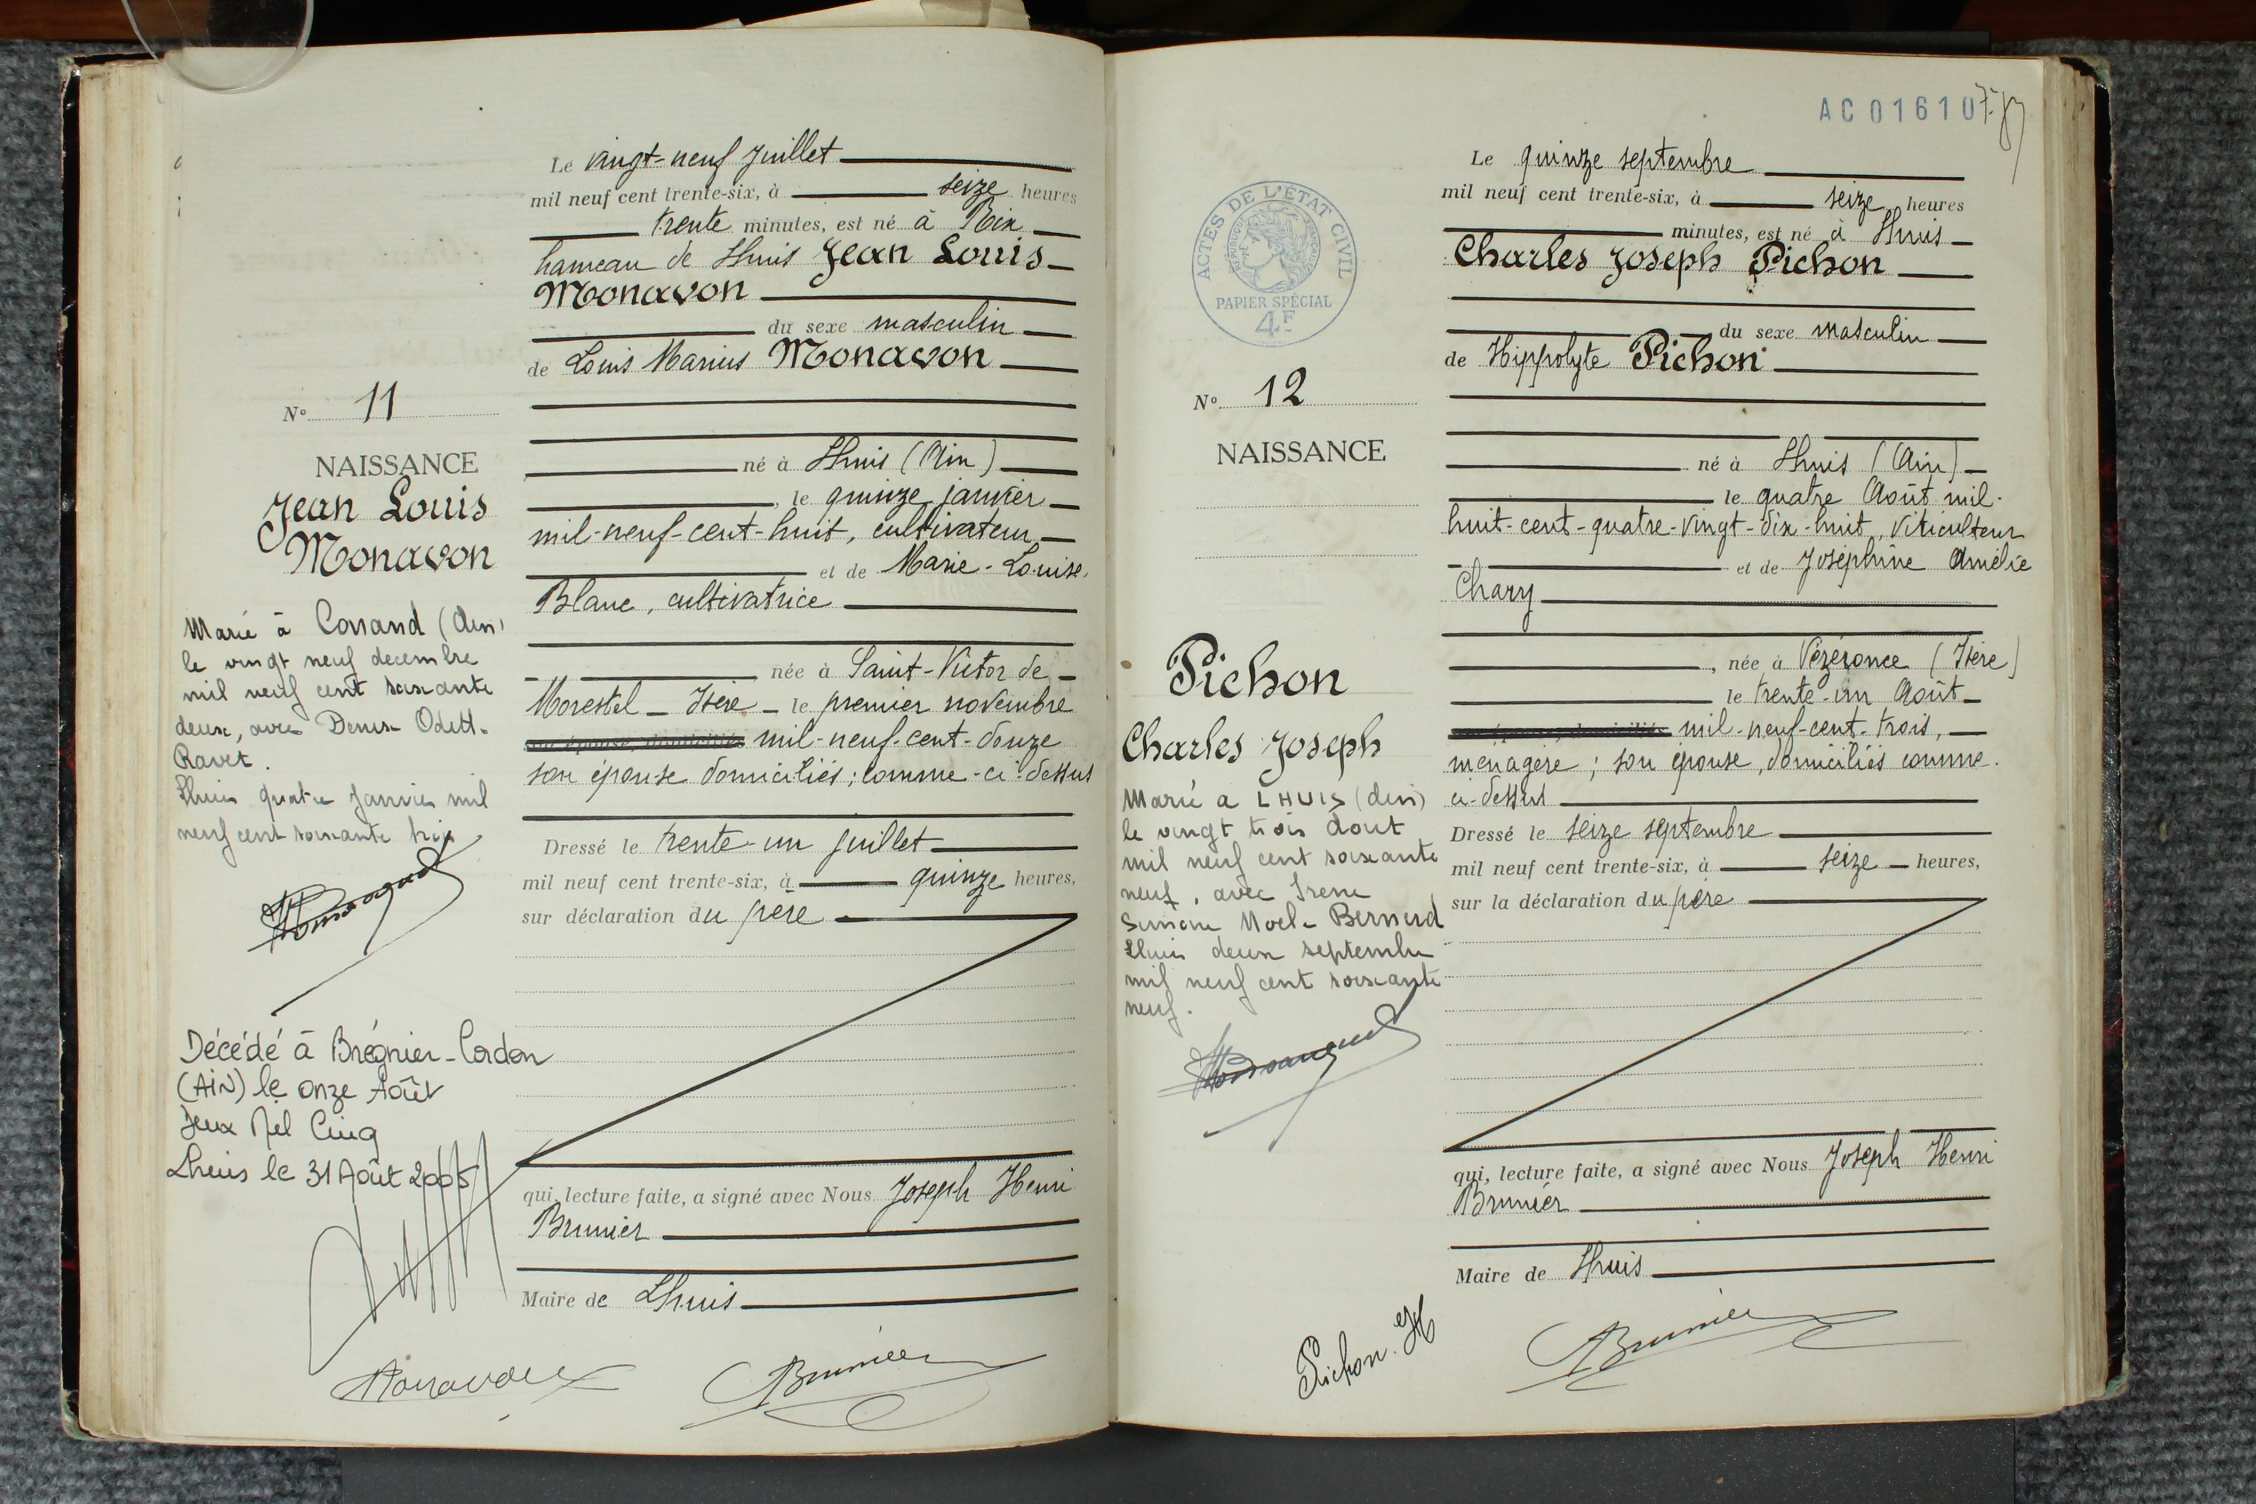 Le vingt-neuf juillet
mil neuf cent trente-six, à seize heures
trente minutes, est né à Rix
hameau de Lhuis Jean Louis
Monavon
du sexe masculin
de Louis Marius Monavon
né à Lhuis (Ain)
le quinze janvier
mil-neuf-cent-huit, cultivateur
et de Marie-Louise
Blanc, cultivatrice
née à Saint-Victor de
Morestel - Isère - le premier novembre
mil-neuf-cent-douze
son épouse domiciliés ; comme-ci-dessus
Dressé le trente-un juillet
mil neuf cent trente-six, à quinze heures,
sur déclaration du père
qui, lecture faite, a signé avec Nous Joseph Henri
Brunier
Maire de Lhuis
Monavon
Brunier
No 11
NAISSANCE
Jean Louis
Monavon
Marié à Conand (Ain)
le vingt neuf decembre
mil neuf cent soixante
deux, avec Denise Odette
Ravet.
Lhuis quatre janvier mil
neuf cent soixante trois
Décédé à Brégnier-Cordon
(AIN) le onze Août
Deux Mil Cinq
Lhuis le 31 Août 2005
AC 01610
ACTES DE L'ÉTAT CIVIL
PAPIER SPÉCIAL
4F
No 12
NAISSANCE
Pichon
Charles Joseph
Marié a LHUIS (Ain)
le vingt trois Aout
mil neuf cent soixante
neuf, avec Irene
Simone Noele Bernerd
Lhuis deux septembre
mil neuf cent soixante
neuf.
Le quinze septembre
mil neuf cent trente-six, à seize heures
minutes, est né à Lhuis
Charles Joseph Pichon
du sexe masculin
de Hippolyte Pichon
né à Lhuis (Ain)
le quatre Août mil-
huit-cent-quatre-vingt-dix-huit, viticulteur
et de Joséphine Amélie
Chary
, née à Vézeronce (Isère)
le trente-un Août
mil-neuf-cent-trois,
ménagère ; son épouse, domiciliés comme
ci-dessus
Dressé le seize septembre
mil neuf cent trente-six, à seize heures,
sur la déclaration du père
qui, lecture faite, a signé avec Nous Joseph Henri
Brunier
Maire de Lhuis
Pichon. H
Brunier